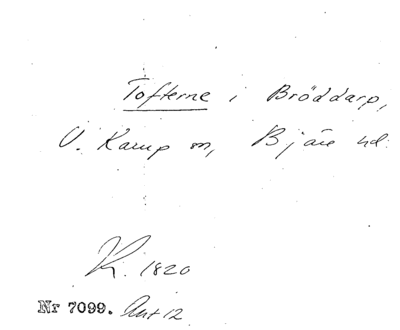 Tofterne i Bröddarp,
V. Karup sn, Bjäre hd.
K. 1820
Nr 7099. Ant 12